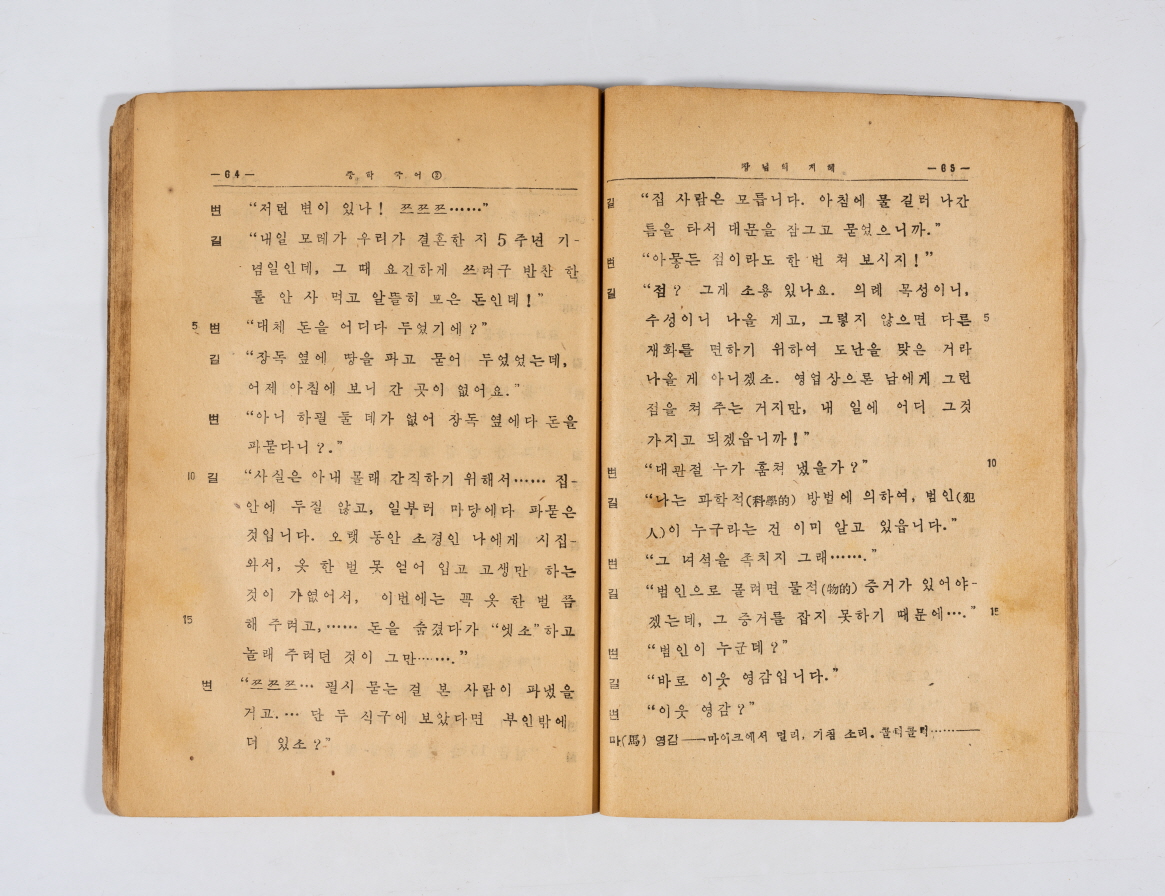 —64— 중학 국어
변 “저런 변이 있나! 쯔쯔쯔……”
길 “내일 모레가 우리가 결혼한 지 5주년 기-
념일인데, 그 때 요긴하게 쓰려구 반찬 한
톨 안 사 먹고 알뜰히 모은 돈인데!”
5 변 “대체 돈을 어디다 두었기에?”
길 “장독 옆에 땅을 파고 묻어 두었었는데,
어제 아침에 보니 간 곳이 없어요.”
변 “아니 하필 둘 데가 없어 장독 옆에다 돈을
파묻다니?.”
10 길 “사실은 아내 몰래 간직하기 위해서…… 집-
안에 두질 않고, 일부러 마당에다 파묻은
것입니다. 오랫 동안 소경인 나에게 시집-
와서, 옷 한 벌 못 얻어 입고 고생만 하는
것이 가엾어서, 이번에는 꼭 옷 한 벌 쯤
15 해 주려고,…… 돈을 숨겼다가 “엣소”하고
놀래 주려던 것이 그만…….”
변 “쯔쯔쯔… 필시 묻는 걸 본 사람이 파냈을
거고.… 단 두 식구에 보았다면 부인밖에
더 있소?”
장님의 지혜 —65—
길 “집 사람은 모릅니다. 아침에 물 길러 나간
틈을 타서 대문을 잠그고 묻었으니까.”
변 “아뭏든 점이라도 한 번 쳐 보시지!”
길 “점? 그게 소용 있나요. 의례 목성이니,
수성이니 나올 게고, 그렇지 않으면 다른 5
재화를 면하기 위하여 도난을 맞은 거라
나올 게 아니겠소. 영업상으론 남에게 그런
점을 쳐 주는 거지만, 내 일에 어디 그것
가지고 되겠읍니까!”
변 “대관절 누가 훔쳐 냈을가?” 10
길 “나는 과학적(科學的) 방법에 의하여, 범인(犯
人)이 누구라는 건 이미 알고 있읍니다.”
변 “그 녀석을 족치지 그래…….”
길 “범인으로 몰려면 물적(物的) 증거가 있어야-
겠는데, 그 증거를 잡지 못하기 때문에….” 15
변 “범인이 누군데?”
길 “바로 이웃 영감입니다.”
변 “이웃 영감?”
마(馬) 영감 ——마이크에서 멀리, 기침 소리. 쿨럭쿨럭……——